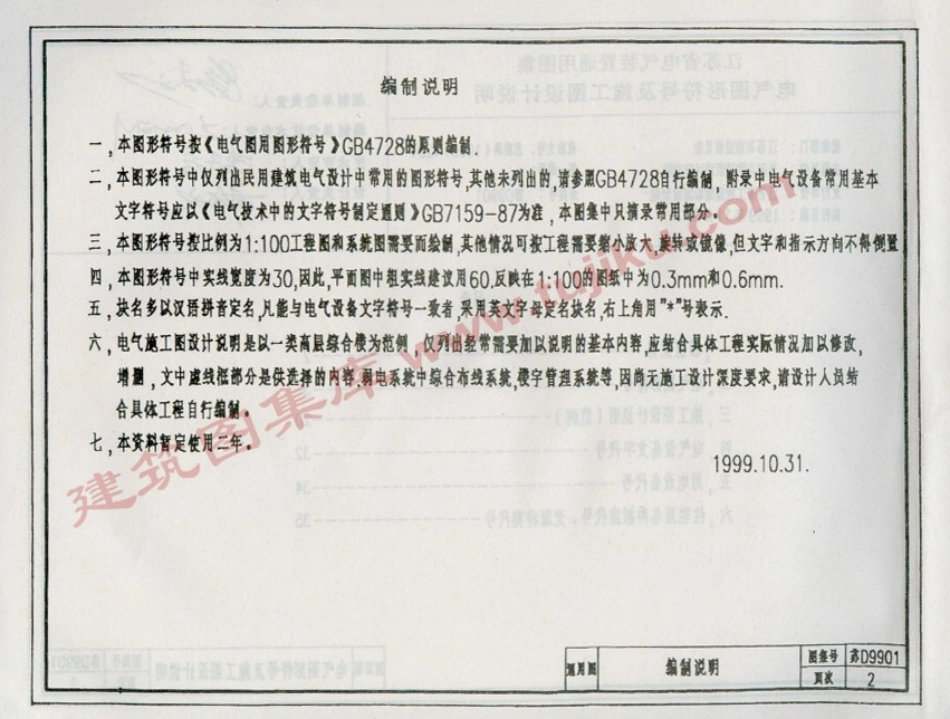 编制说明
一，本图形符号按《电气图用图形符号》GB4728的原则编制.
二，本图形符号中仅列出民用建筑电气设计中常用的图形符号,其他未列出的,请参照GB4728自行编制，附录中电气设备常用基本
文字符号应以《电气技术中的文字符号制定通则》GB7159-87为准，本图集中只摘录常用部分。
三，本图形符号按比例为1:100工程图和系统图需要而绘制,其他情况可按工程需要缩小放大,旋转或镜像,但文字和指示方向不得倒置
四，本图形符号中实线宽度为30,因此,平面图中粗实线建议用60,反映在1:100的图纸中为0.3mm和0.6mm.
五，块名多以汉语拼音定名,凡能与电气设备文字符号一致者,采用英文字母定名块名,右上角用"*"号表示.
六，电气施工图设计说明是以一类高层综合楼为范例，仅列出经常需要加以说明的基本内容,应结合具体工程实际情况加以修改,
增删，文中虚线框部分是供选择的内容,弱电系统中综合布线系统,楼宇管理系统等,因尚无施工设计深度要求,请设计人员结
合具体工程自行编制。
七，本资料暂定使用二年。
1999.10.31.
建筑图集库 www.tujiku.com
通用图 编制说明 图集号 苏D9901
页次 2